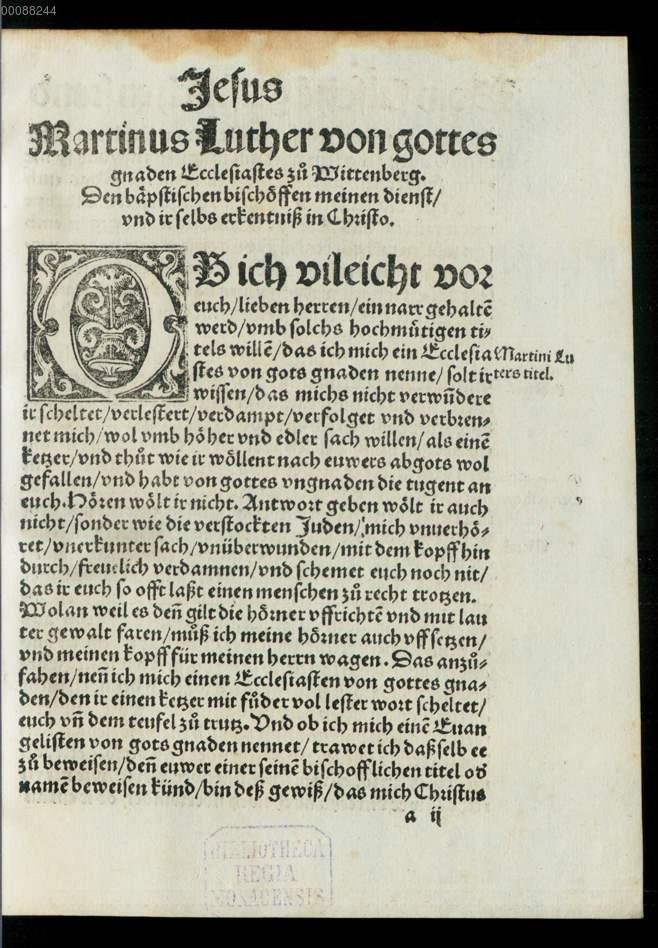 00088244
Jesus
Martinus Luther von gottes
gnaden Ecclesiastes zů Wittenberg.
Den bäpstischen bischöffen meinen dienst/
vnd ir selbs erkentniß in Christo.
OB ich vileicht vor
euch/lieben herren/ein narr gehaltē
werd/vmb solchs hochmůtigen ti-
tels willē/das ich mich ein Ecclesia
stes von gots gnaden nenne/ solt ir
wissen/das michs nicht verwūdere
ir scheltet/verlestert/verdampt/verfolget vnd verbren-
net mich/wol vmb höher vnd edler sach willen/als einē
ketzer/vnd thůt wie ir wöllent nach euwers abgots wol
gefallen/vnd habt von gottes vngnaden die tugent an
euch.Hören wölt ir nicht. Antwort geben wölt ir auch
nicht/sonder wie die verstockten Juden/mich vnuerhö-
ret/vnerkunter sach/vnüberwunden/mit dem kopff hin
durch/freuelich verdamnen/vnd schemet euch noch nit/
das ir euch so offt laßt einen menschen zů recht trotzen.
Wolan weil es deñ gilt die hörner vffrichtē vnd mit lau
ter gewalt faren/můß ich meine hörner auch vffsetzen/
vnd meinen kopff für meinen herrn wagen. Das anzů-
fahen/neñ ich mich einen Ecclesiasten von gottes gna-
den/den ir einen ketzer mit fůder vol lester wort scheltet/
euch vñ dem teufel zů trutz. Vnd ob ich mich einē Euan
gelisten von gots gnaden nennet/ trawet ich daßselb ee
zů beweisen/deñ euwer einer seinē bischofflichen titel od
namē beweisen künd/bin deß gewiß/das mich Christus
a ij
Martini Lu
ters titel.
BIBLIOTHECA
REGIA
MONACENSIS